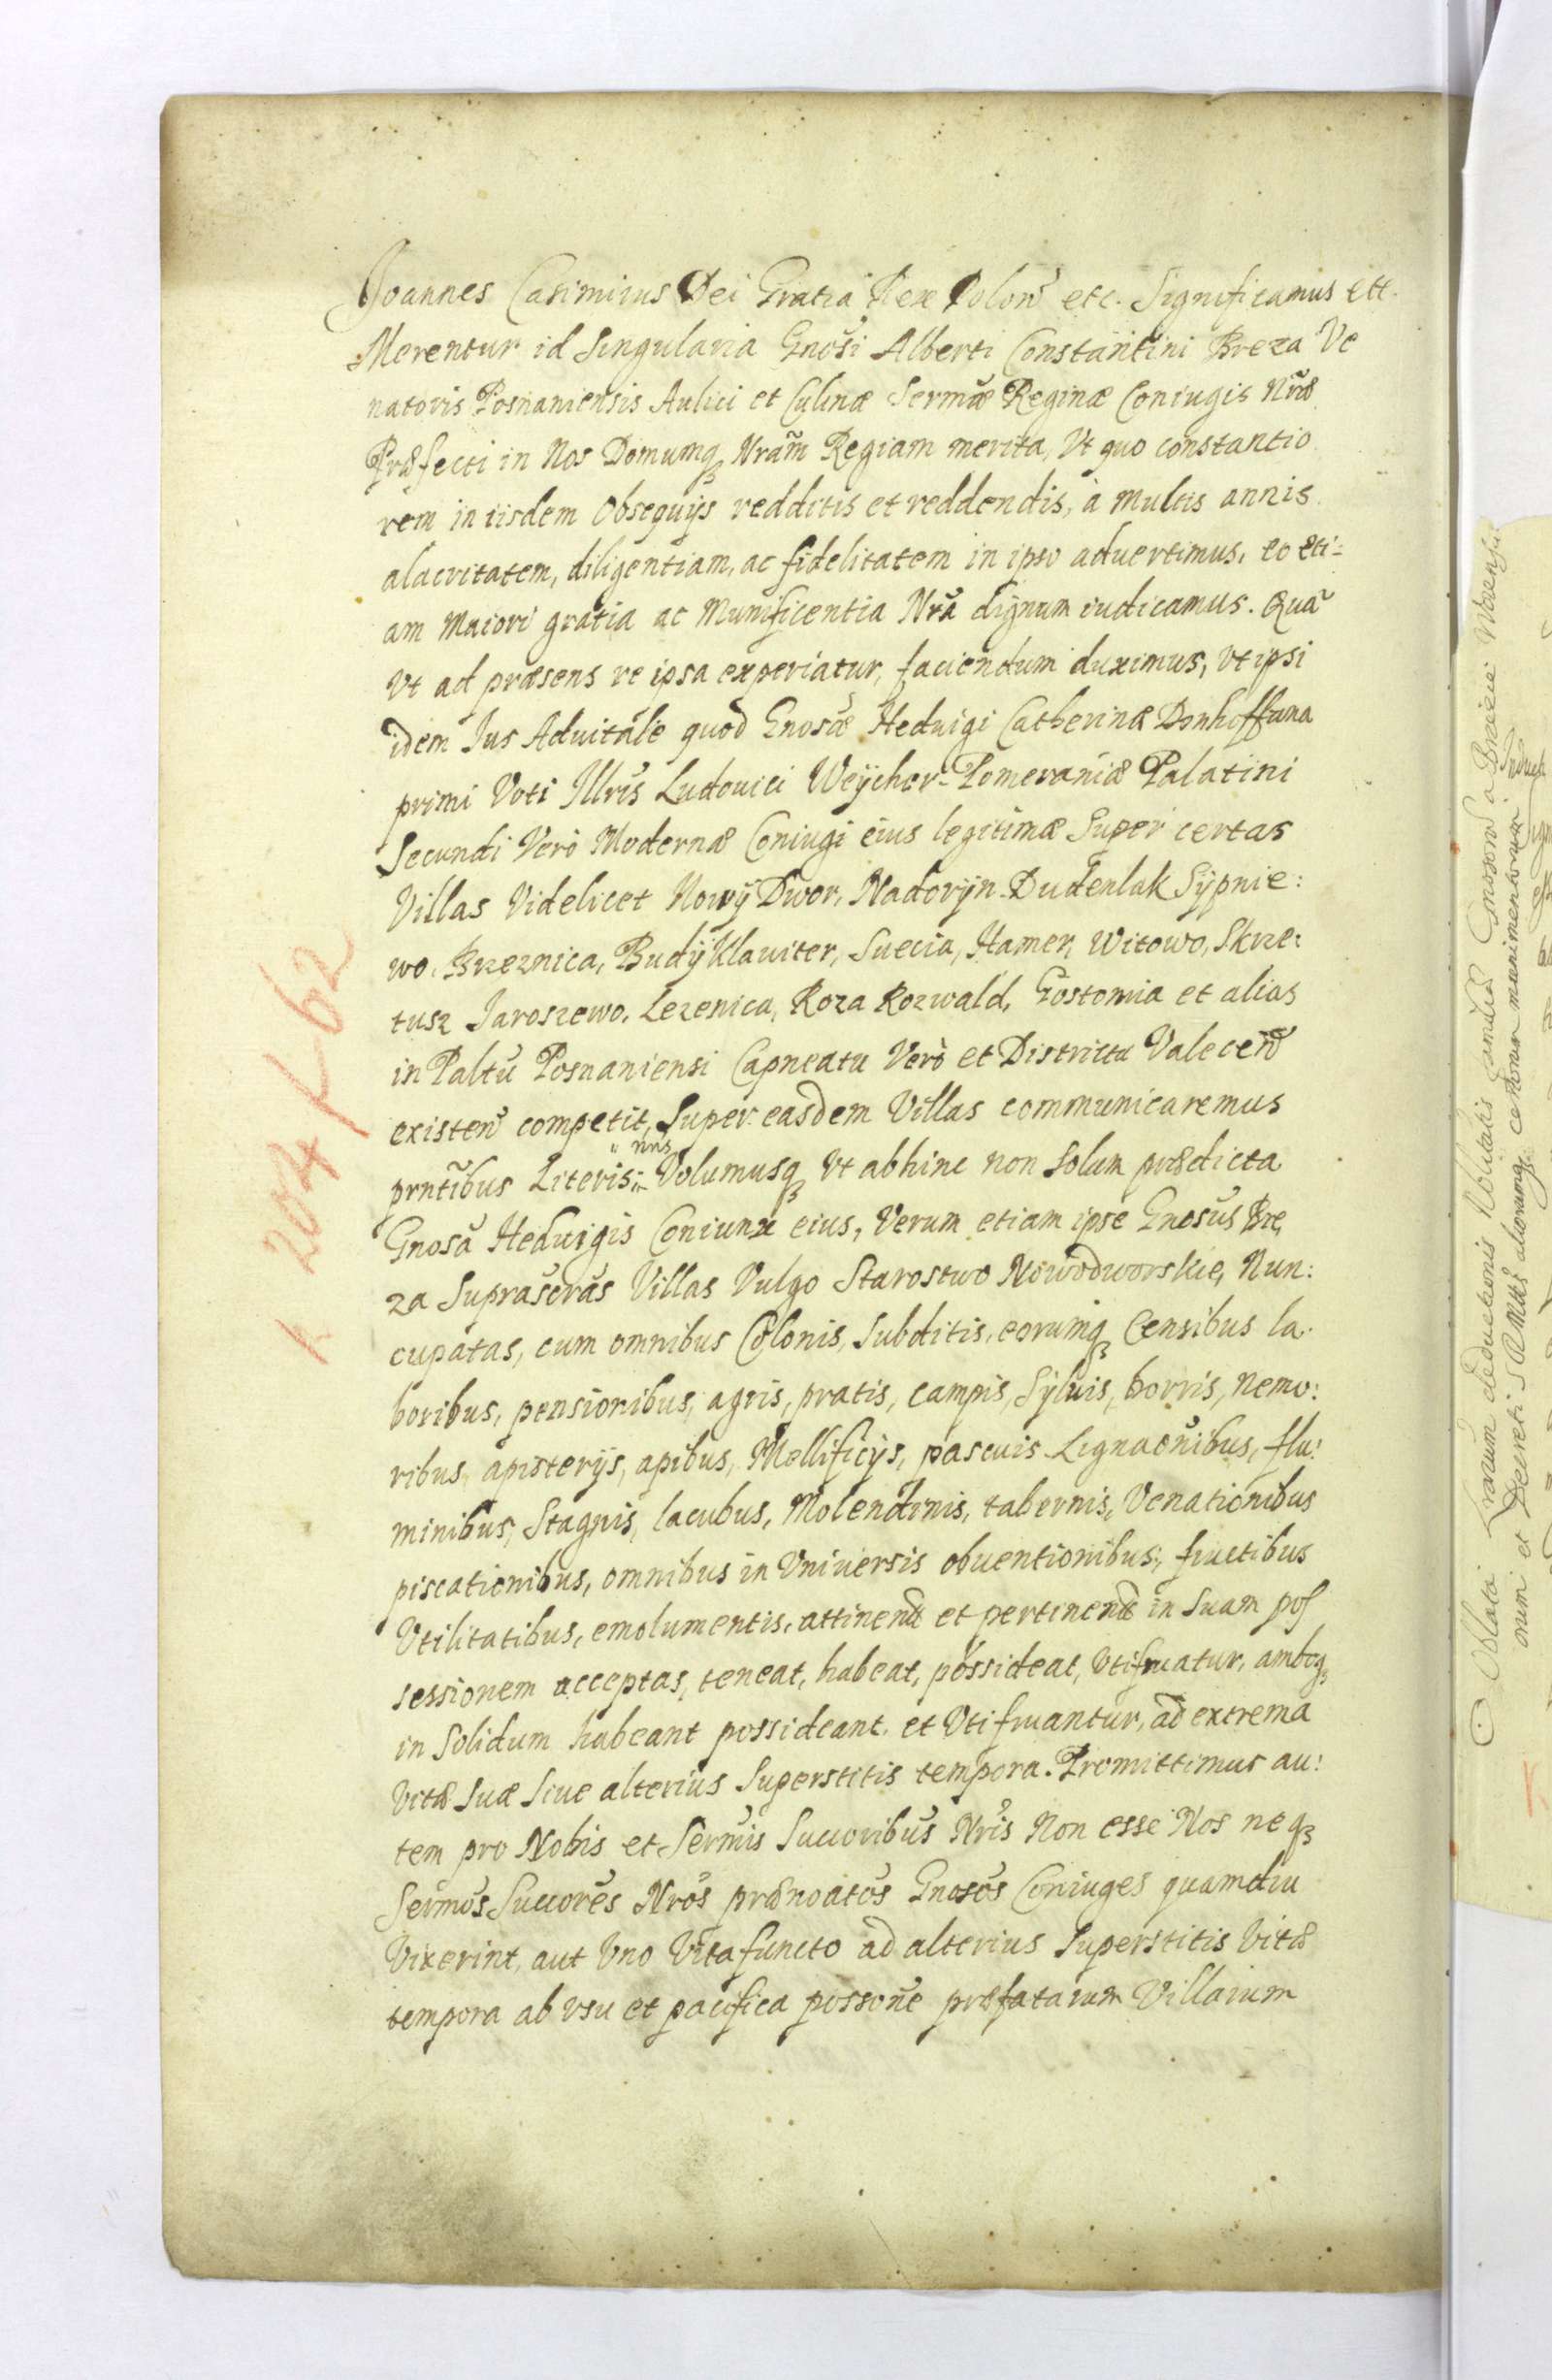 Joannes Casimirus Dei Gratia Rex Polon̄ etc. Significamus ett.
Merentur id Singularia Gnosi Alberti Constantini Breza Ve
natoris Posnaniensis Aulici et Culinæ Sermæ Reginæ Coniugis Nræ
Præfecti in Nos Domumqꝫ Nram̄ Regiam merita, Vt quo constantio
rem in iisdem Obsequijs redditis et reddendis, à multis annis
alacritatem, diligentiam, ac fidelitatem in ipso aduertimus, eo eti:
am Maiori gratia ac Munificentia Nrã dignum iudicamus. Quã
Vt ad præsens re ipsa experiatur, faciendum duximus, vt ipsi
idem Jus Aduitale quod Gnosæ Heduigi Catherinæ Donhoffana
primi Voti Illris Ludouici Weÿcher Pomeraniæ Palatini
Secundi Verò Modernæ Coniugi eius legitimæ Super certas
Villas Videlicet Nowÿ Dwor, Nadorÿn Dudenlak Sÿpnie:
wo, Brzeznica, Budÿ Klauiter, Suecia, Hamer, Witowo, Skrze:
tusz Jaroszewo, Lezenica, Roza Rozwald, Gostomia et alias
in Paltu Posnaniensi Capneatu Verò et Districtu Valecen̄
existen̄ competit, Super easdem Villas communicaremus
prntibus Literis nris Volumusqꝫ Vt abhinc non Solum prædicta
Gnosa Heduigis Coniunx eius, Verum etiam ipse Gnosus Bre
za Suprascras Villas Vulgo Starostwo Nowodworskie, Nun:
cupatas, cum omnibus Colonis, Subditis, eorumqꝫ Censibus la
boribus, pensionibus, agris, pratis, campis, Sÿluis, borris, nemo:
ribus, apisterijs, apibus, Mellificijs, pascuis Lignaōnibus, flu:
minibus, Stagnis, lacubus, Molendinis, tabernis, Venationibus
piscationibus, omnibus in Vniuersis obuentionibus, fructibus
Vtilitatibus, emolumentis, attinen et pertinen in Suam pos
sessionem acceptas, teneat, habeat, possideat, Vtifruatur, amboqꝫ
in Solidum habeant possideant, et Vtifruantur, ad extrema
Vitæ Suæ Siue alterius Superstitis tempora. Promittimus au:
tem pro Nobis et Sermis Succoribus Nris Non esse Nos neqꝫ
Sermos Succores Nros prænoatos Gnosos Coniuges quamdiu
Vixerint, aut Vno Vita functo ad alterius Superstitis Vitæ
tempora ab vsu et pacifica possone præfatarum Villarum
204
62